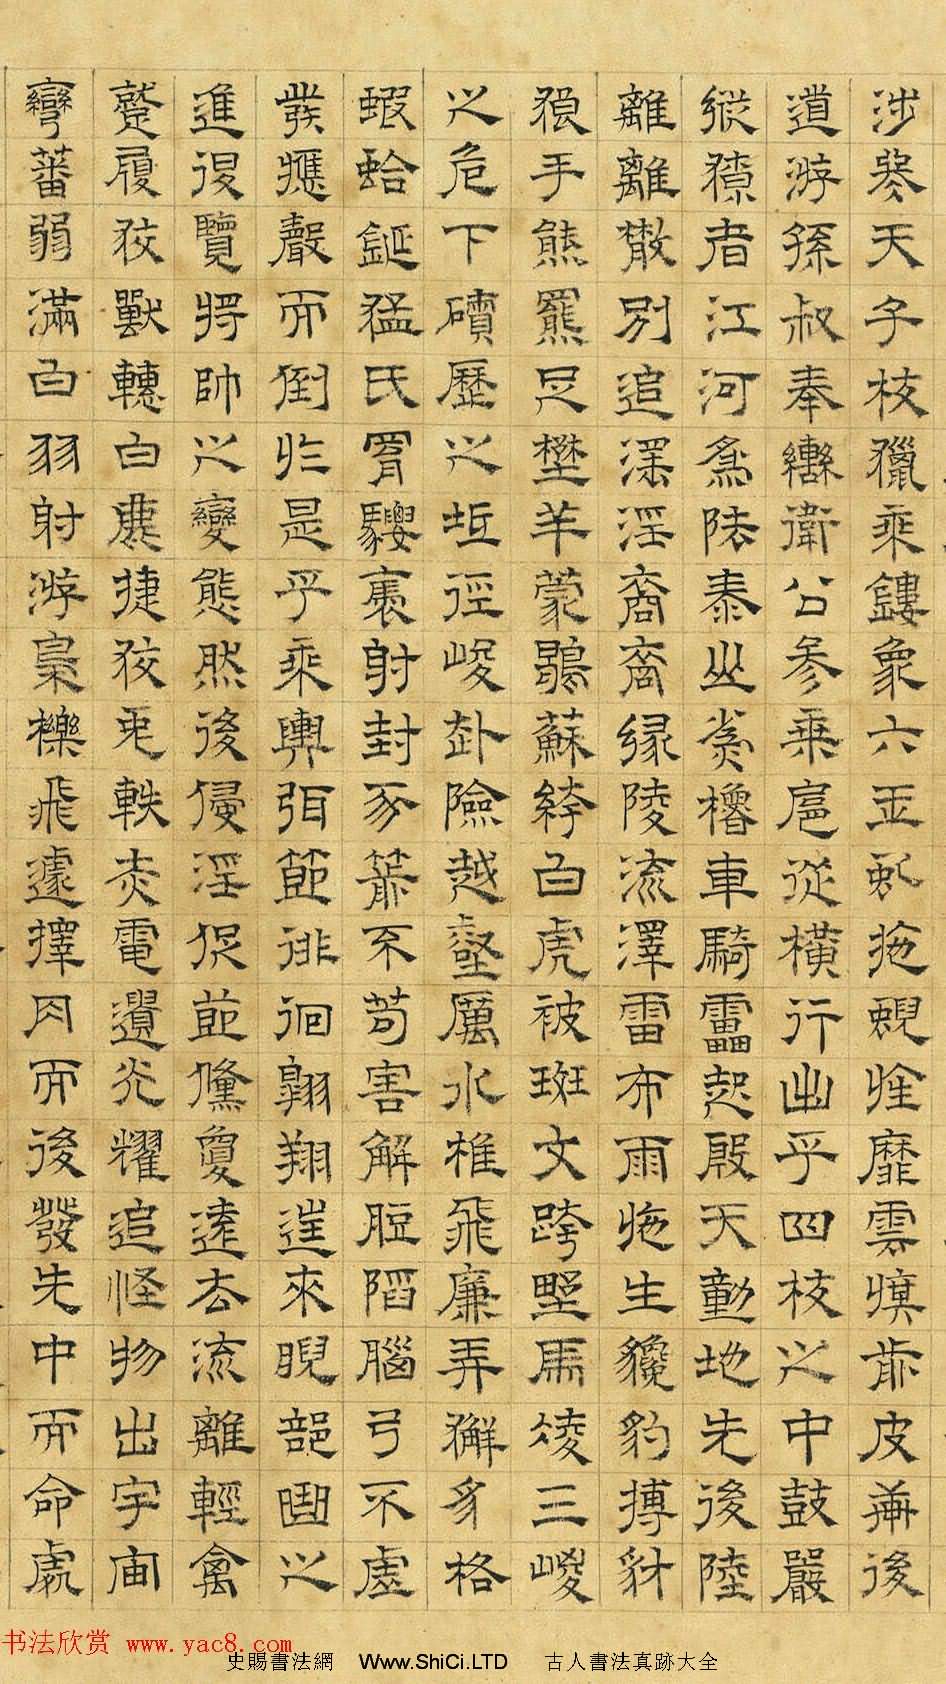 涉冬天子校獵乘鏤象六玉虯拖蜺旌靡雲旗前皮軒後
道游孫叔奉轡衛公參乘扈從橫行出乎四校之中鼓嚴
縱獠者江河為阹泰山為櫓車騎靁起殷天動地先後陸
離離散別追淫淫裔裔緣陵流澤雷布雨施生貔豹搏豺
狼手熊羆足壄羊蒙鶡蘇絝白虎被斑文跨壄馬凌三嵏
之危下磧歷之坻徑峻赴險越壑厲水椎飛廉弄獬豸格
蝦蛤鋋猛氏罥騕褭射封豕箭不苟害解脰陷腦弓不虛
發應聲而倒於是乎乘輿弭節徘徊翱翔往來睨部曲之
進退覽將帥之變態然後侵淫促節儵敻遠去流離輕禽
蹵履狡獸轊白鹿捷狡兔軼赤電遺光耀追怪物出宇宙
彎蕃弱滿白羽射游梟櫟飛遽擇肉而後發先中而命處
书法欣赏 www.yac8.com
史賜書法網 Www.ShiCi.LTD 古人書法真跡大全